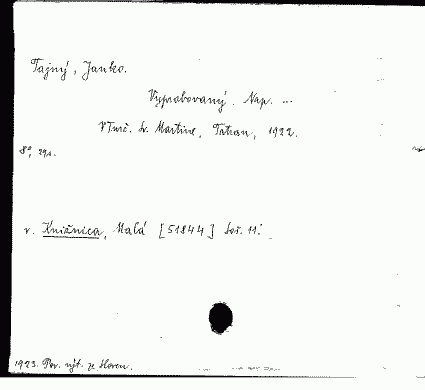 Tajný, Janko.
Vyprobovaný. Nap. ...
V Turč. Sv. Martine, Tatran, 1922.
8°, 29s.
v. Knižnica, Malá [51844] Soš. 11.
1923. Pov. výt. ze Sloven.